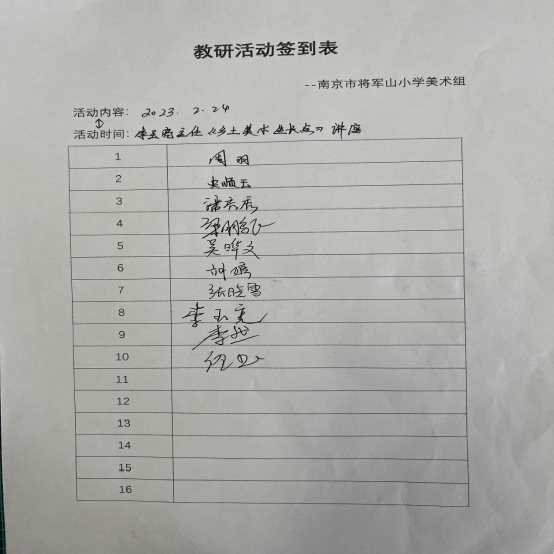 教研活动签到表
--南京市将军山小学美术组
活动内容: 2023. 2. 24
活动时间: 主任《乡土美术生长点》讲座
1 周明
2 史顺玉
3
4 梁鹏飞
5 吴晔文
6
7 张晓雪
8 李玉宽
9 李然
10
11
12
13
14
15
16